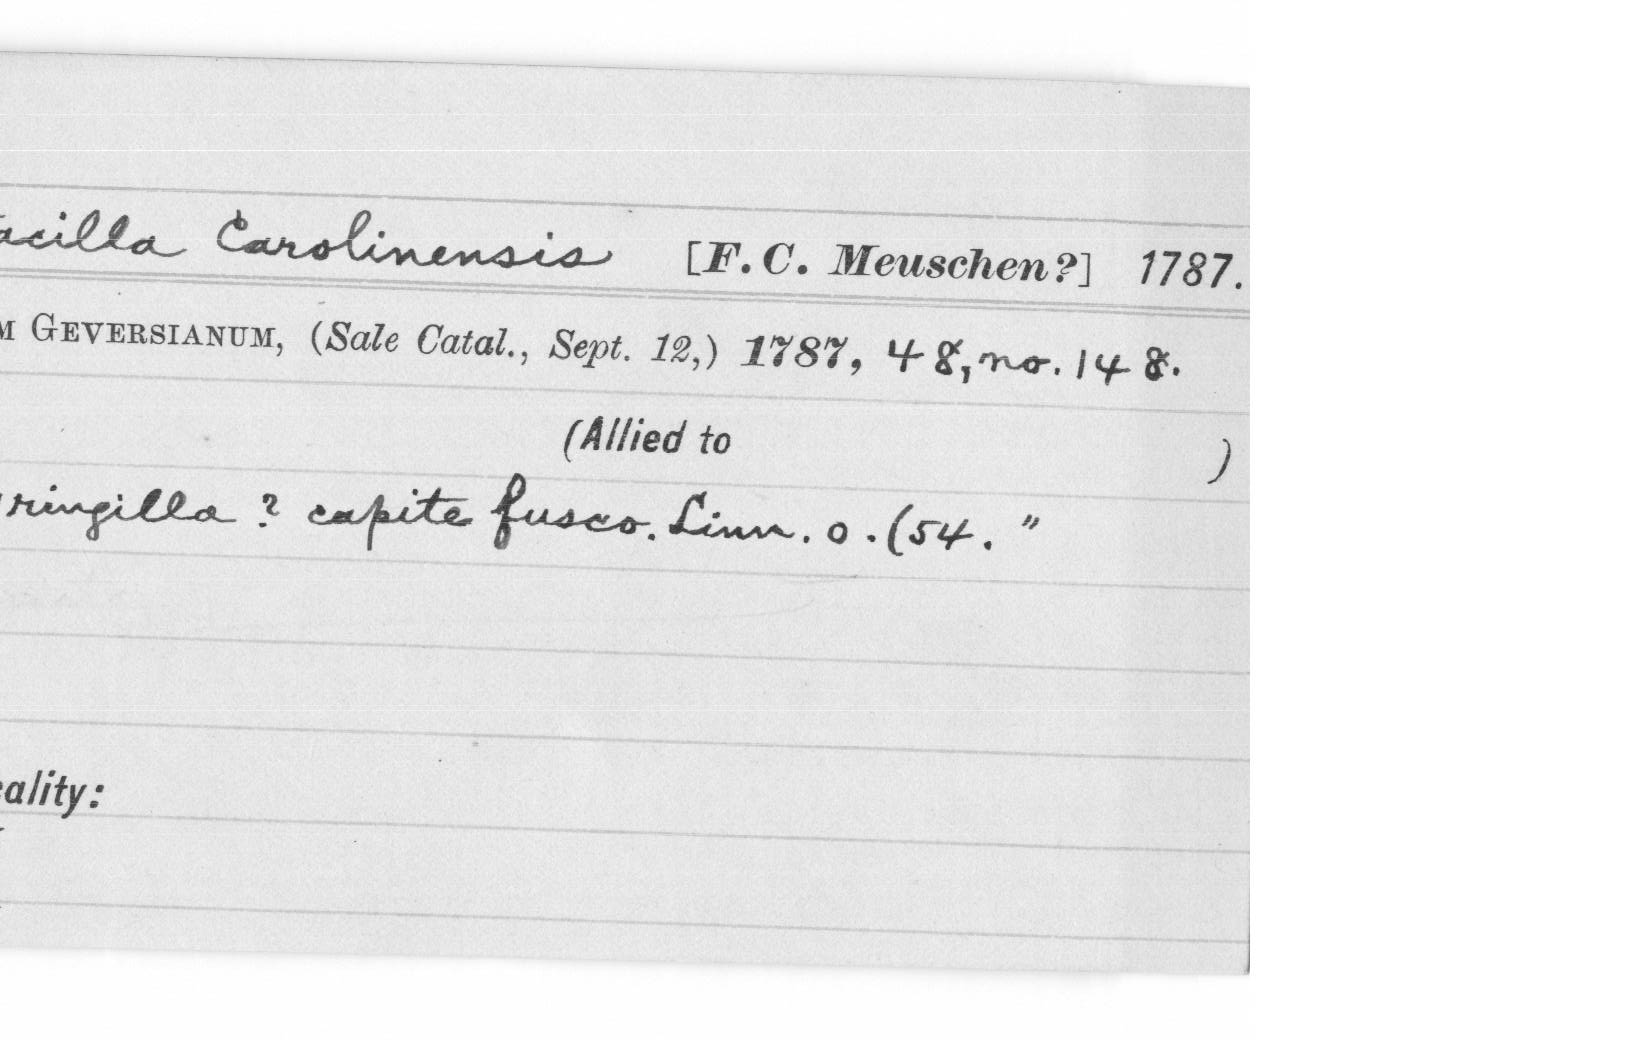 acilla Carolinensis [F. C. Meuschen?] 1787.
M GEVERSIANUM, (Sale Catal., Sept. 12,) 1787, 48, no. 148.
(Allied to )
ringilla ? capite fusco. Linn. o. (54. "
ality: